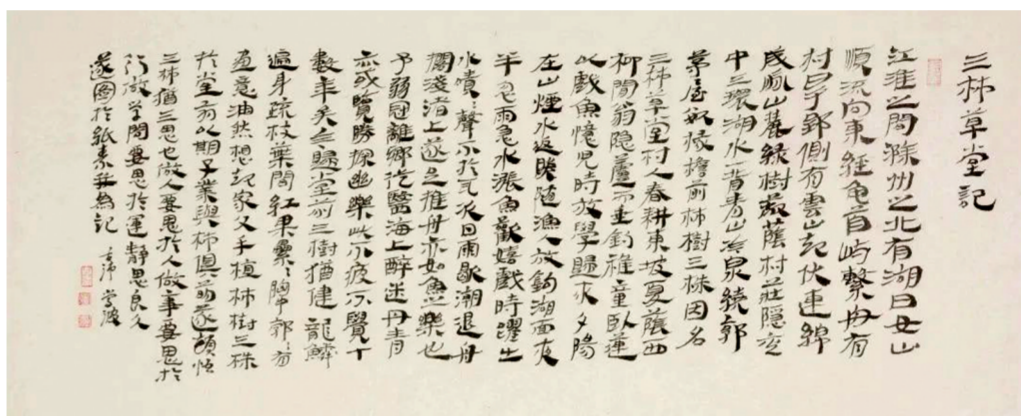 三柿草堂記
江淮之間滁州之北有湖曰女山
順流向東經龜首嶼繫舟有
村曰子郢側有雲山起伏連綿
成脈山麓綠樹叢蔭村莊隱
中三環湖水背青山冷泉繞郭
茅屋數椽檐前柿樹三株因名
三柿草堂村人春耕東坡夏蔭西
柳間翁隱蘆而垂釣稚童臥蓮
以戲魚憶兒時放學歸來夕陽
在山煙水返隨漁人放鉤湖面夜
半忽雨急水漲魚歡嬉戲時躍出
水嘖〻聲不於耳次日雨歇潮退舟
擱淺渚上遂足推舟亦如魚樂也
予弱冠離鄉從醫海上醉迷丹青
亦或覽勝探幽樂此不疲不覺
數年矣歸堂前三樹猶健龍鱗
遍身疏枝葉間紅果纍〻胸中有
畫意油然想起家父手植柿樹三株
於堂前以期子業與柿俱茂遂頓悟
三柿猶三思也做人要思於人做事要思於
行做学問要思於運靜思良久
遂圖於紙素並為記